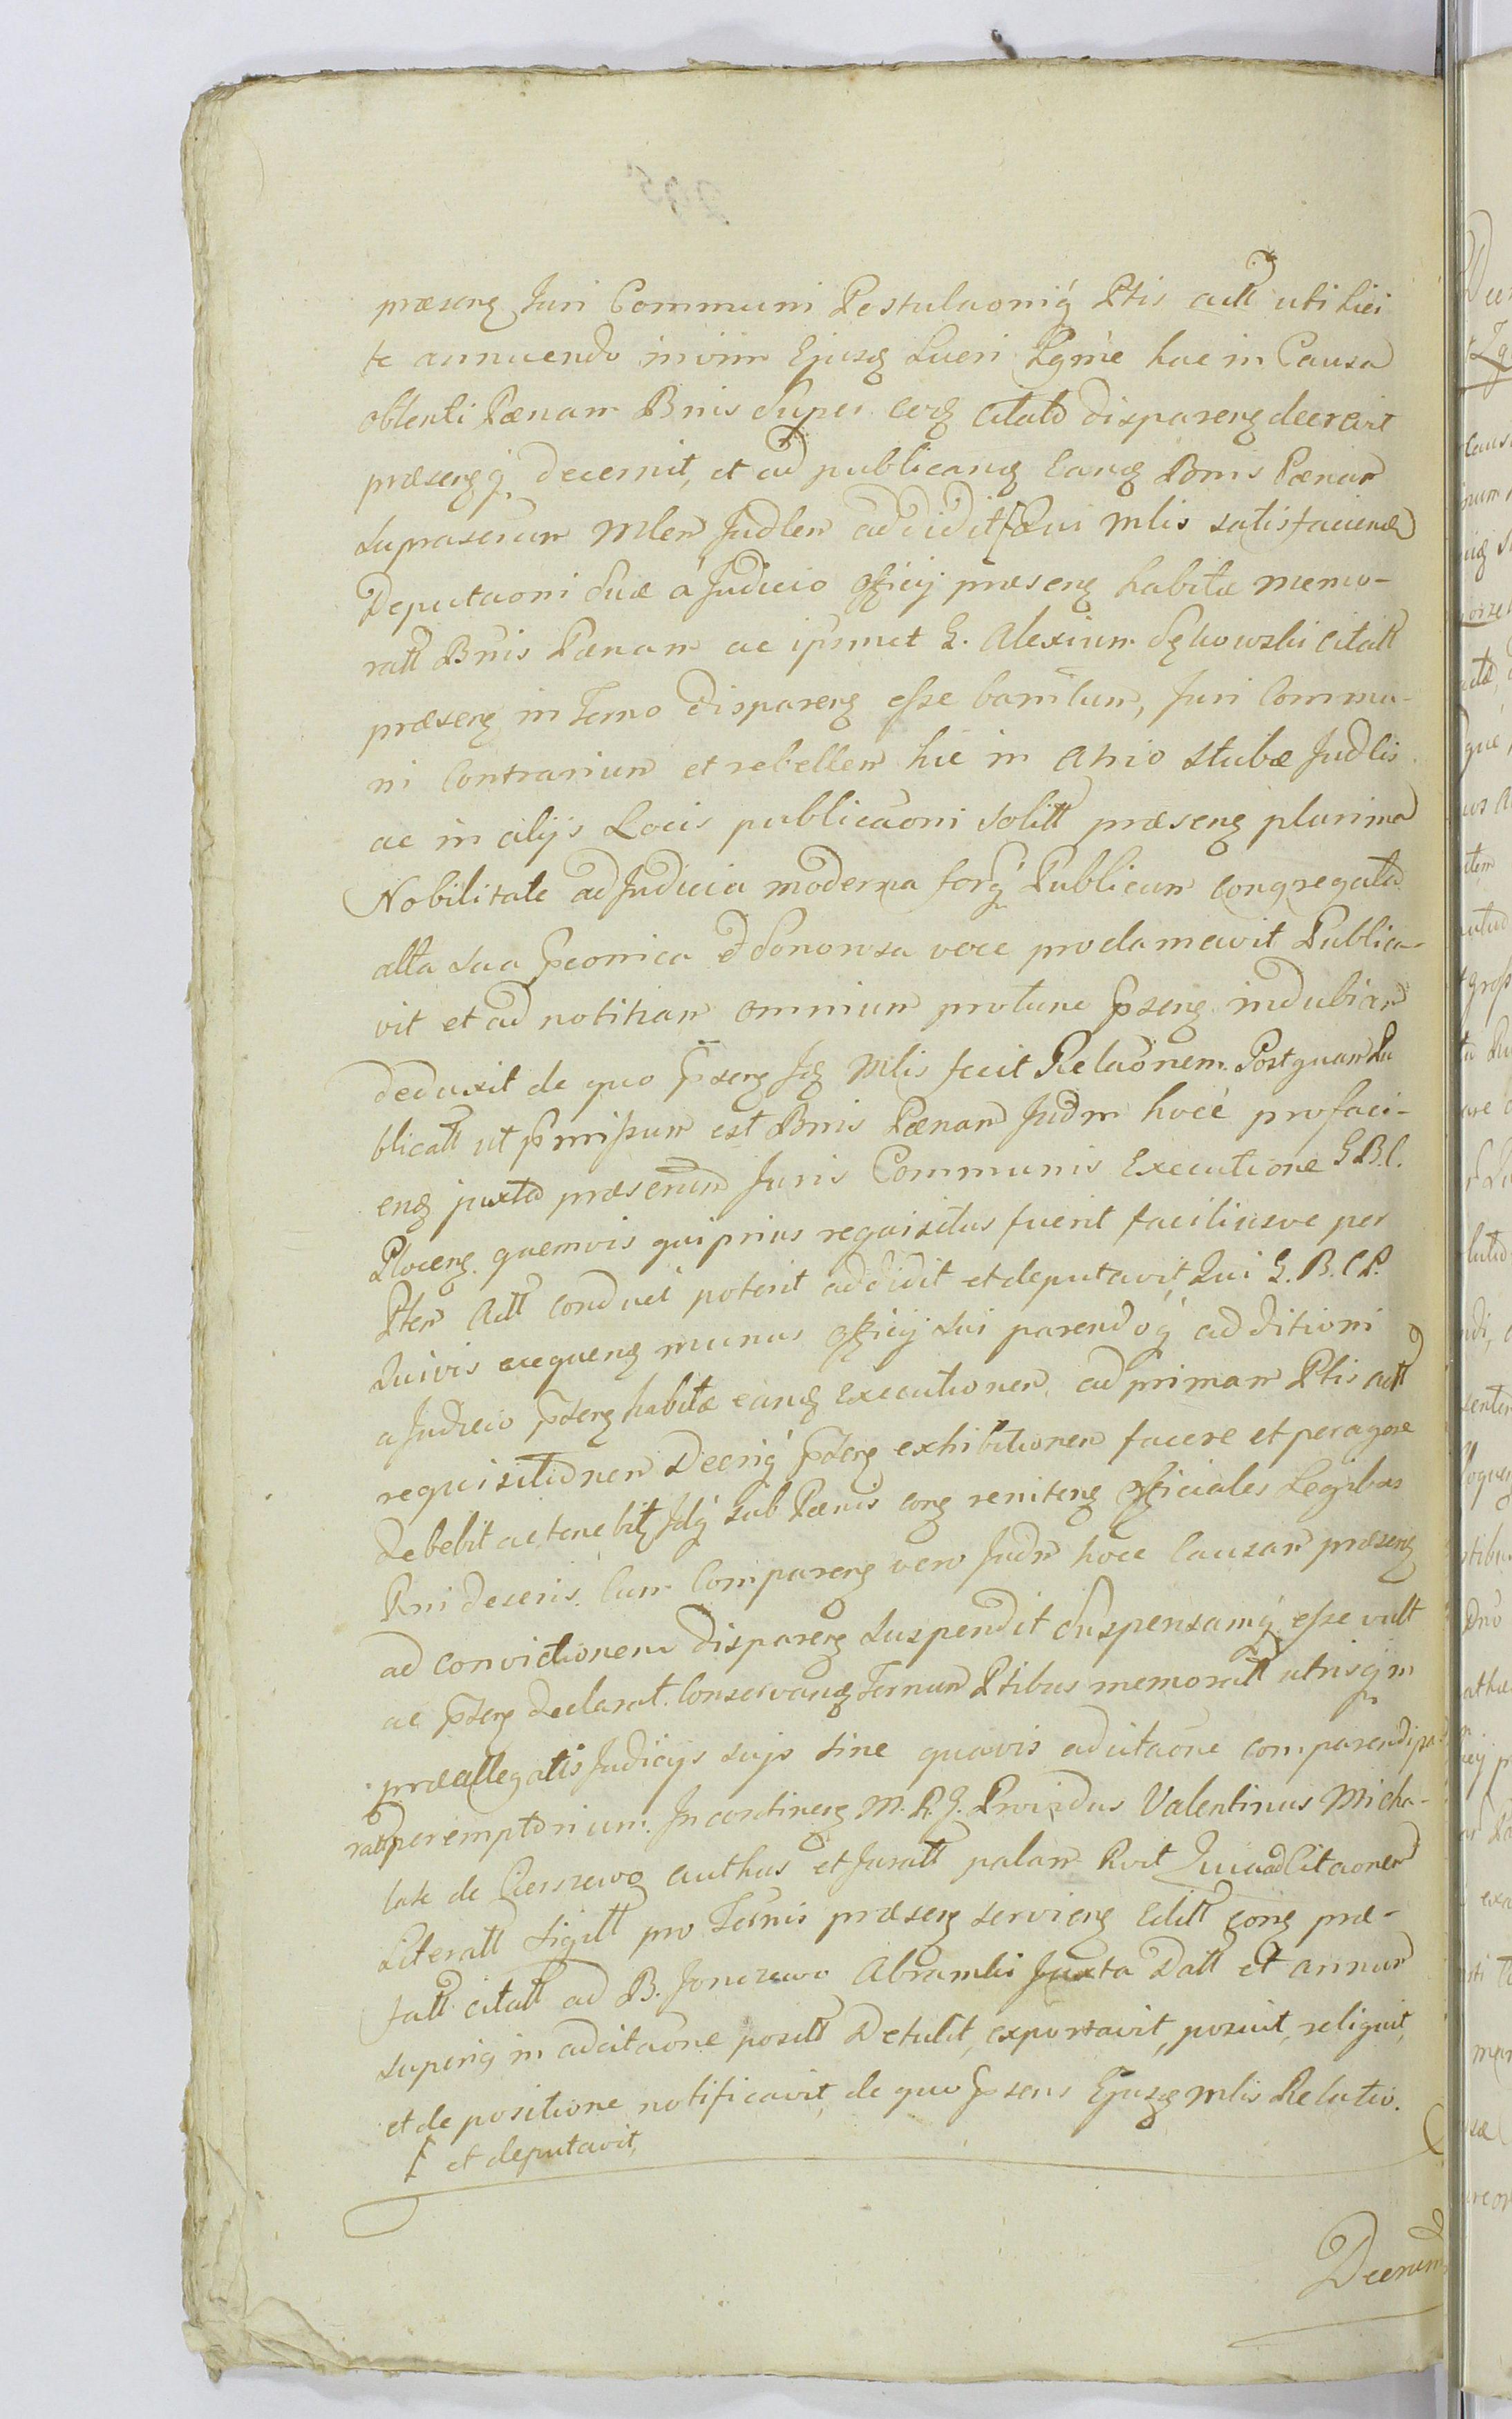 præseng Juri Communi Postulaoniq́ Ptis actt uti lici
te annuendo in vim Ejusq Lucri Pgnie hac in Causa
obtenti Pænam Bnis Super citato dispareng decrevit
præsengq́ decernit, et ad publicanq Eanq Bnis Pænam
suprascrum Mlem Judlem addidit [Qui Mlis satisfaciend
Deputaoni suæ á Judicio officij præseng habitæ memo-
ratt Bnis Pænam ac ipsmet G. Alexium citatt
præseng in Termo dispareng esse banitum, Juri Commu-
ni Contrarium et rebellem hic in Atrio Stubæ Judlis
ac in alijs Locis publicaoni solitt præseng plurima
Nobilitate ad Judicia moderna forq́ Publicum congregata
alta sua pconica & Sonorosa voce proclamavit Publica-
vit et ad notitiam omnium protunc pseng indubiam
deduxit de quo pseng Jq Mlis fecit Relaonem. Postquam Pu
blicatt ut pmissum est Bnis Pænam Judm hocce profaci-
enq juxta præscrum Juris Communis Executione G.B.C.
Ploceng quemvis qui prius requisitus fuerit faciliusve per
Ptem Actt conduci poterit addidit et deputavit, Qui G.B.C.P.
Quivis exequens munus officij sui parendoq́ additioni
a Judicio pseng habitæ eanq Executionem, ad primam Ptis actt
requisitionem Decriq́ pseng exhibitionem facere et peragere
debebit ac tenebit Idq́ sub Pænis cong reniteng officiales Legibus
Rni descris. Cum Compareng vero Judm hocce Causam præseng
ad convictionem dispareng suspendit suspensamq́ esse vult
ac pseng declarat. Conservanq Ternum Ptibus memoratt utrisq́ in
præallegatis Judicijs sujs sine quavis adcitaone comparendi pa-
ratt peremptorium. Incontineng M.R.G. Providus Valentinus Micha-
lak de authus et Juratt palam Rvit Quia ad Citaonem
Literatt sigitt pro Ternis præseng servieng Editt cong præ-
fatt citatt ad B. Jonczewo Abramki Juxta Datt et annum
superiq́ in adcitaone positt Detulit, exportavit, posuit, reliquit,
et de positione notificavit, de quo psens Ejusq Mlis Relatio.
[ et deputavit,
Decrum